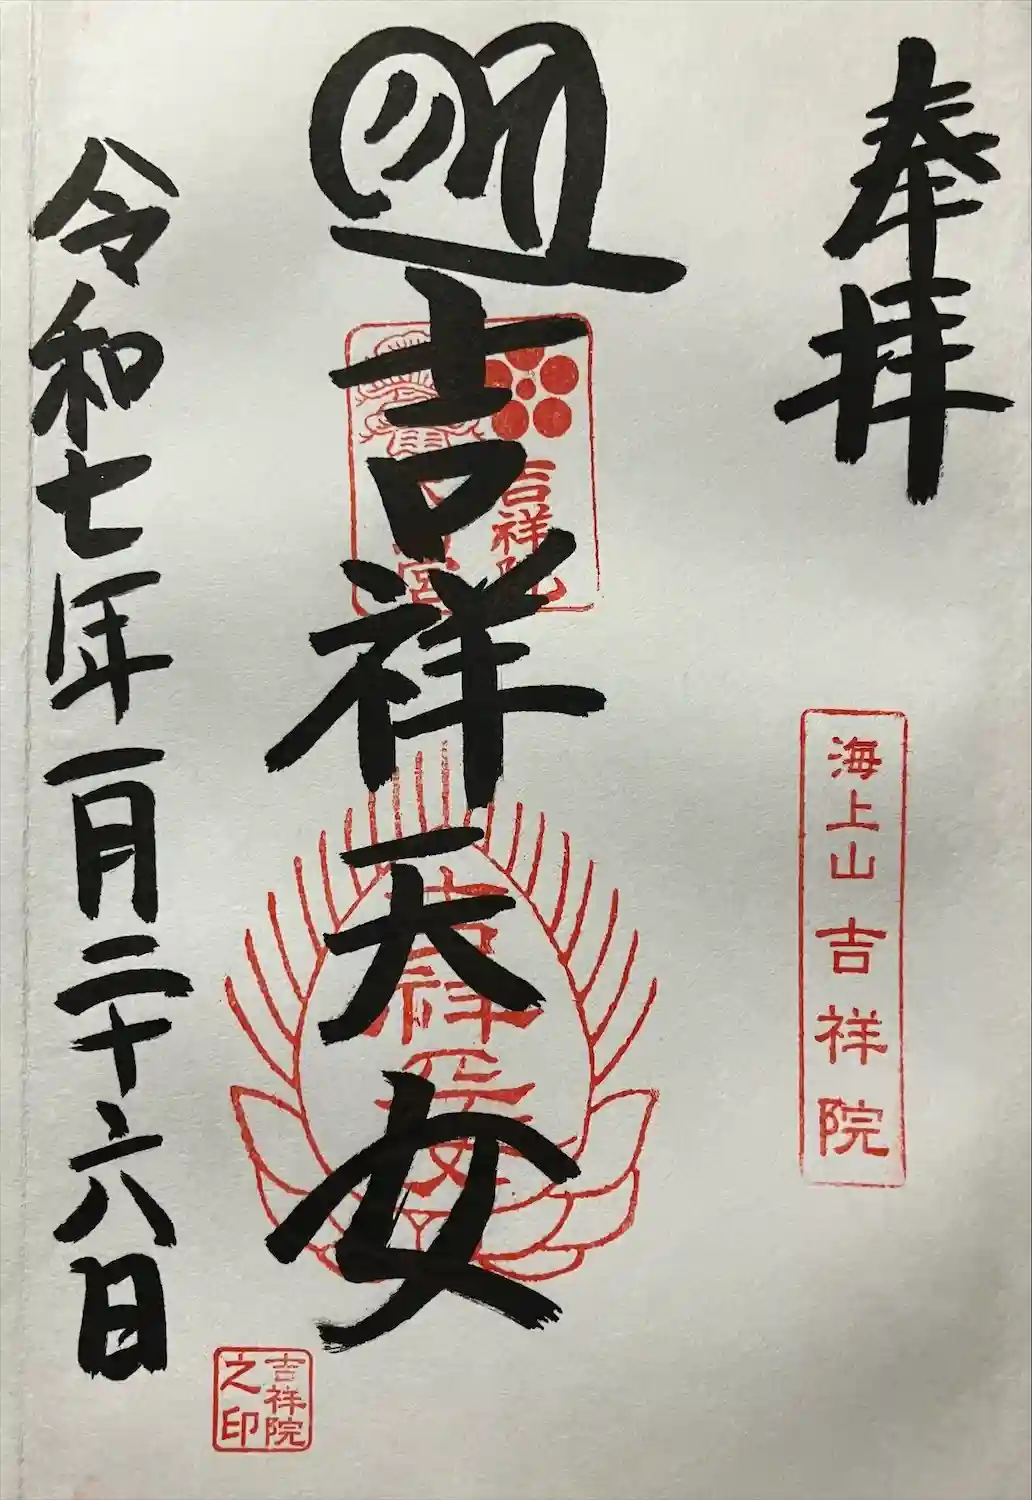 奉拝
海上山吉祥院
吉祥天女
吉祥院
吉祥天女
令和七年一月二十六日
吉祥院
之印